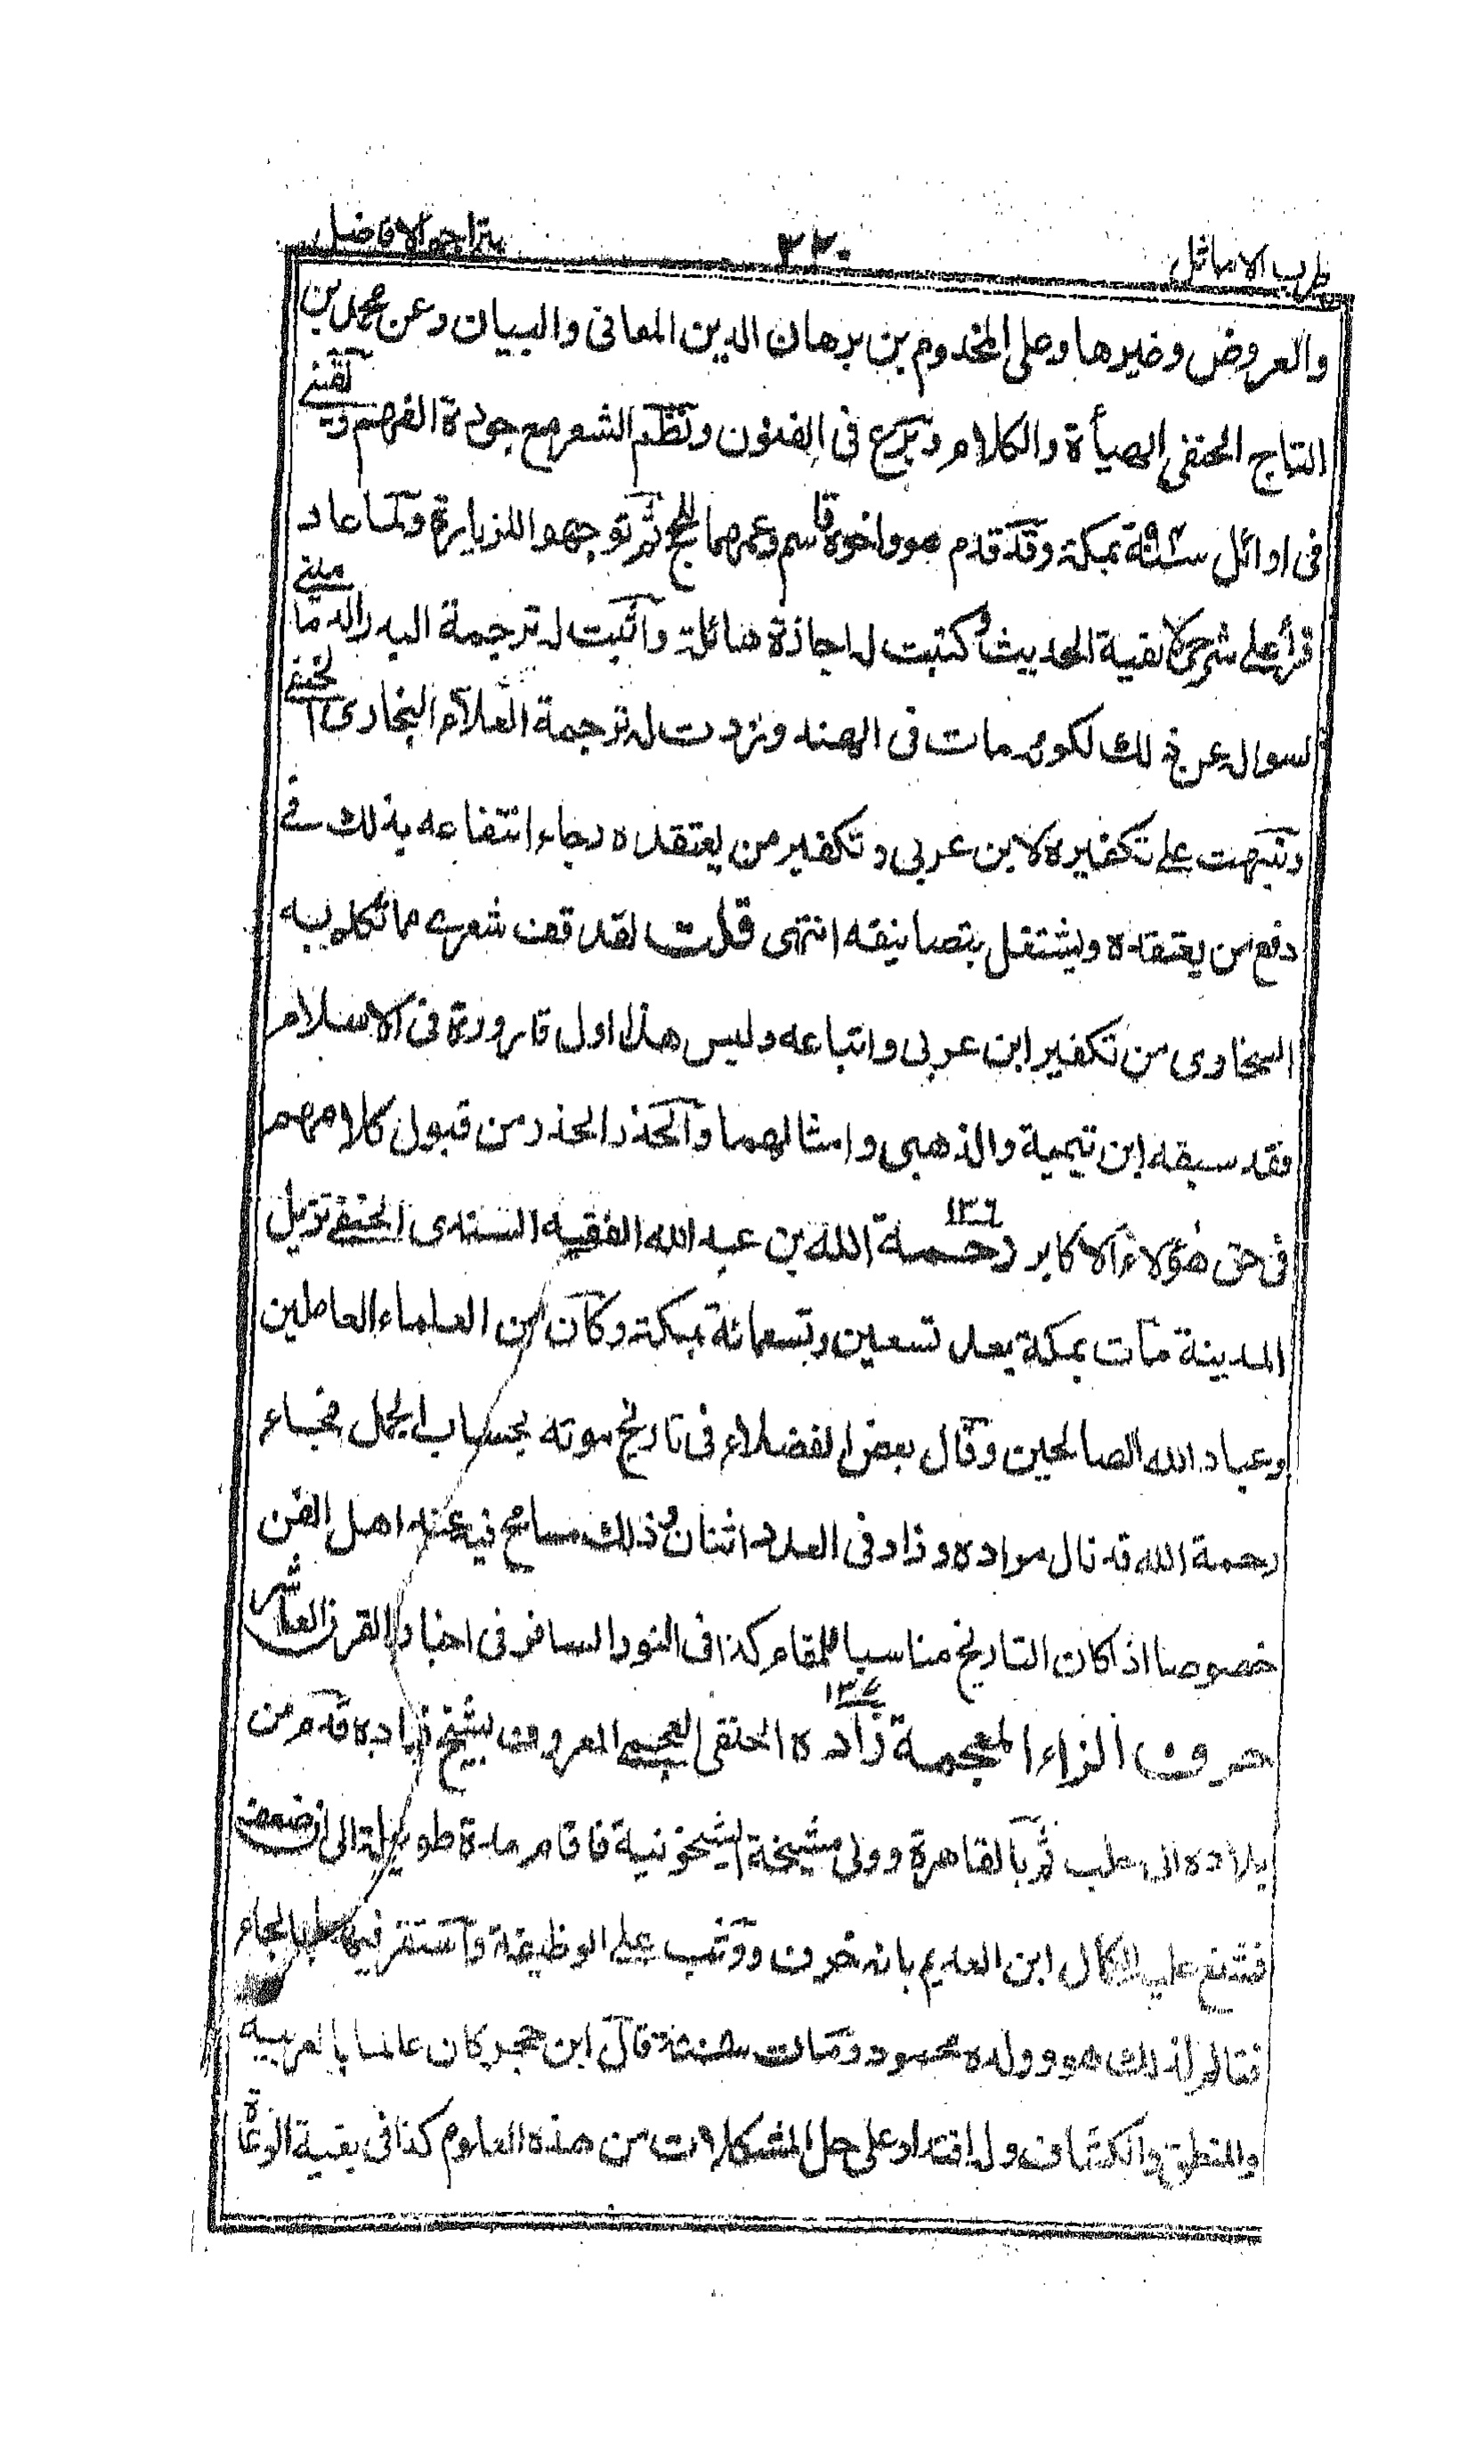 طرب الاماثل ٢٢٠ بتراجم الافاضل
والعروض وغيرها وعلى المخدوم بن برهان الدين المعانى والبيان وعن محمد بن
التاج الحنفى الهيأة والكلام وبرع فى الفنون ونظم الشعر مع جودة الفهم ولقينى
فى اوائل سنة بمكة وقد قدم هو واخوه قاسم وعمهما للحج ثم توجهوا للزيارة ولما عاد
قرأ على شرحى لالفية الحديث وكتبت له اجازة هائلة واثبت له ترجمة البدر الدما مينى
لسواله عن ذلك لكونه مات فى الهند وزدت له ترجمة العلاء البخارى الحنفى
ونبهت على تكفيره لابن عربى وتكفير من يعتقده رجاء انتفاعه بذلك فى
دفع من يعتقده ويشتغل بتصانيفه انتهى قلت لقد قف شعرى مما تكلم به
السخاوى من تكفير ابن عربى واتباعه وليس هذا اول قارورة فى الاسلام
فقد سبقه ابن تيمية والذهبى وامثالهما والحذر الحذر من قبول كلامهم
فى حق هؤلاء الاكابر ١٣٦ رحمة الله بن عبد الله الفقيه السندى الحنفى نزيل
المدينة مات بمكة بعد تسعين وتسعمائة بمكة وكان من العلماء العاملين
وعباد الله الصالحين وقال بعض الفضلاء فى تاريخ موته بحساب الجمل فجاء
رحمة الله قد نال مراده وزاد فى العدد اثنان وذلك مسامح فيه عند اهل الفن
خصوصا اذا كان التاريخ مناسبا للمقام كذا فى النور السافر فى اخبار القرن العاشر
حرف الزاء المعجمة ١٣٧ زاده الحنفى العجمى المعروف بشيخ زاده قدم من
بلاده الى حلب ثم بالقاهرة وولى مشيخة الشيخونية فاقام مدة طويلة الى ان ضعف
فشنع عليه الكمال ابن العديم بانه خرف ووثب على الوظيفة واستقر فيها بالجاه
فتالم لذلك هو وولده محمود ومات سنة قال ابن حجر كان عالما بالعربيه
والمنطق والكشاف وله اقتدار على حل المشكلات من هذه العلوم كذا فى بغية الوعاة